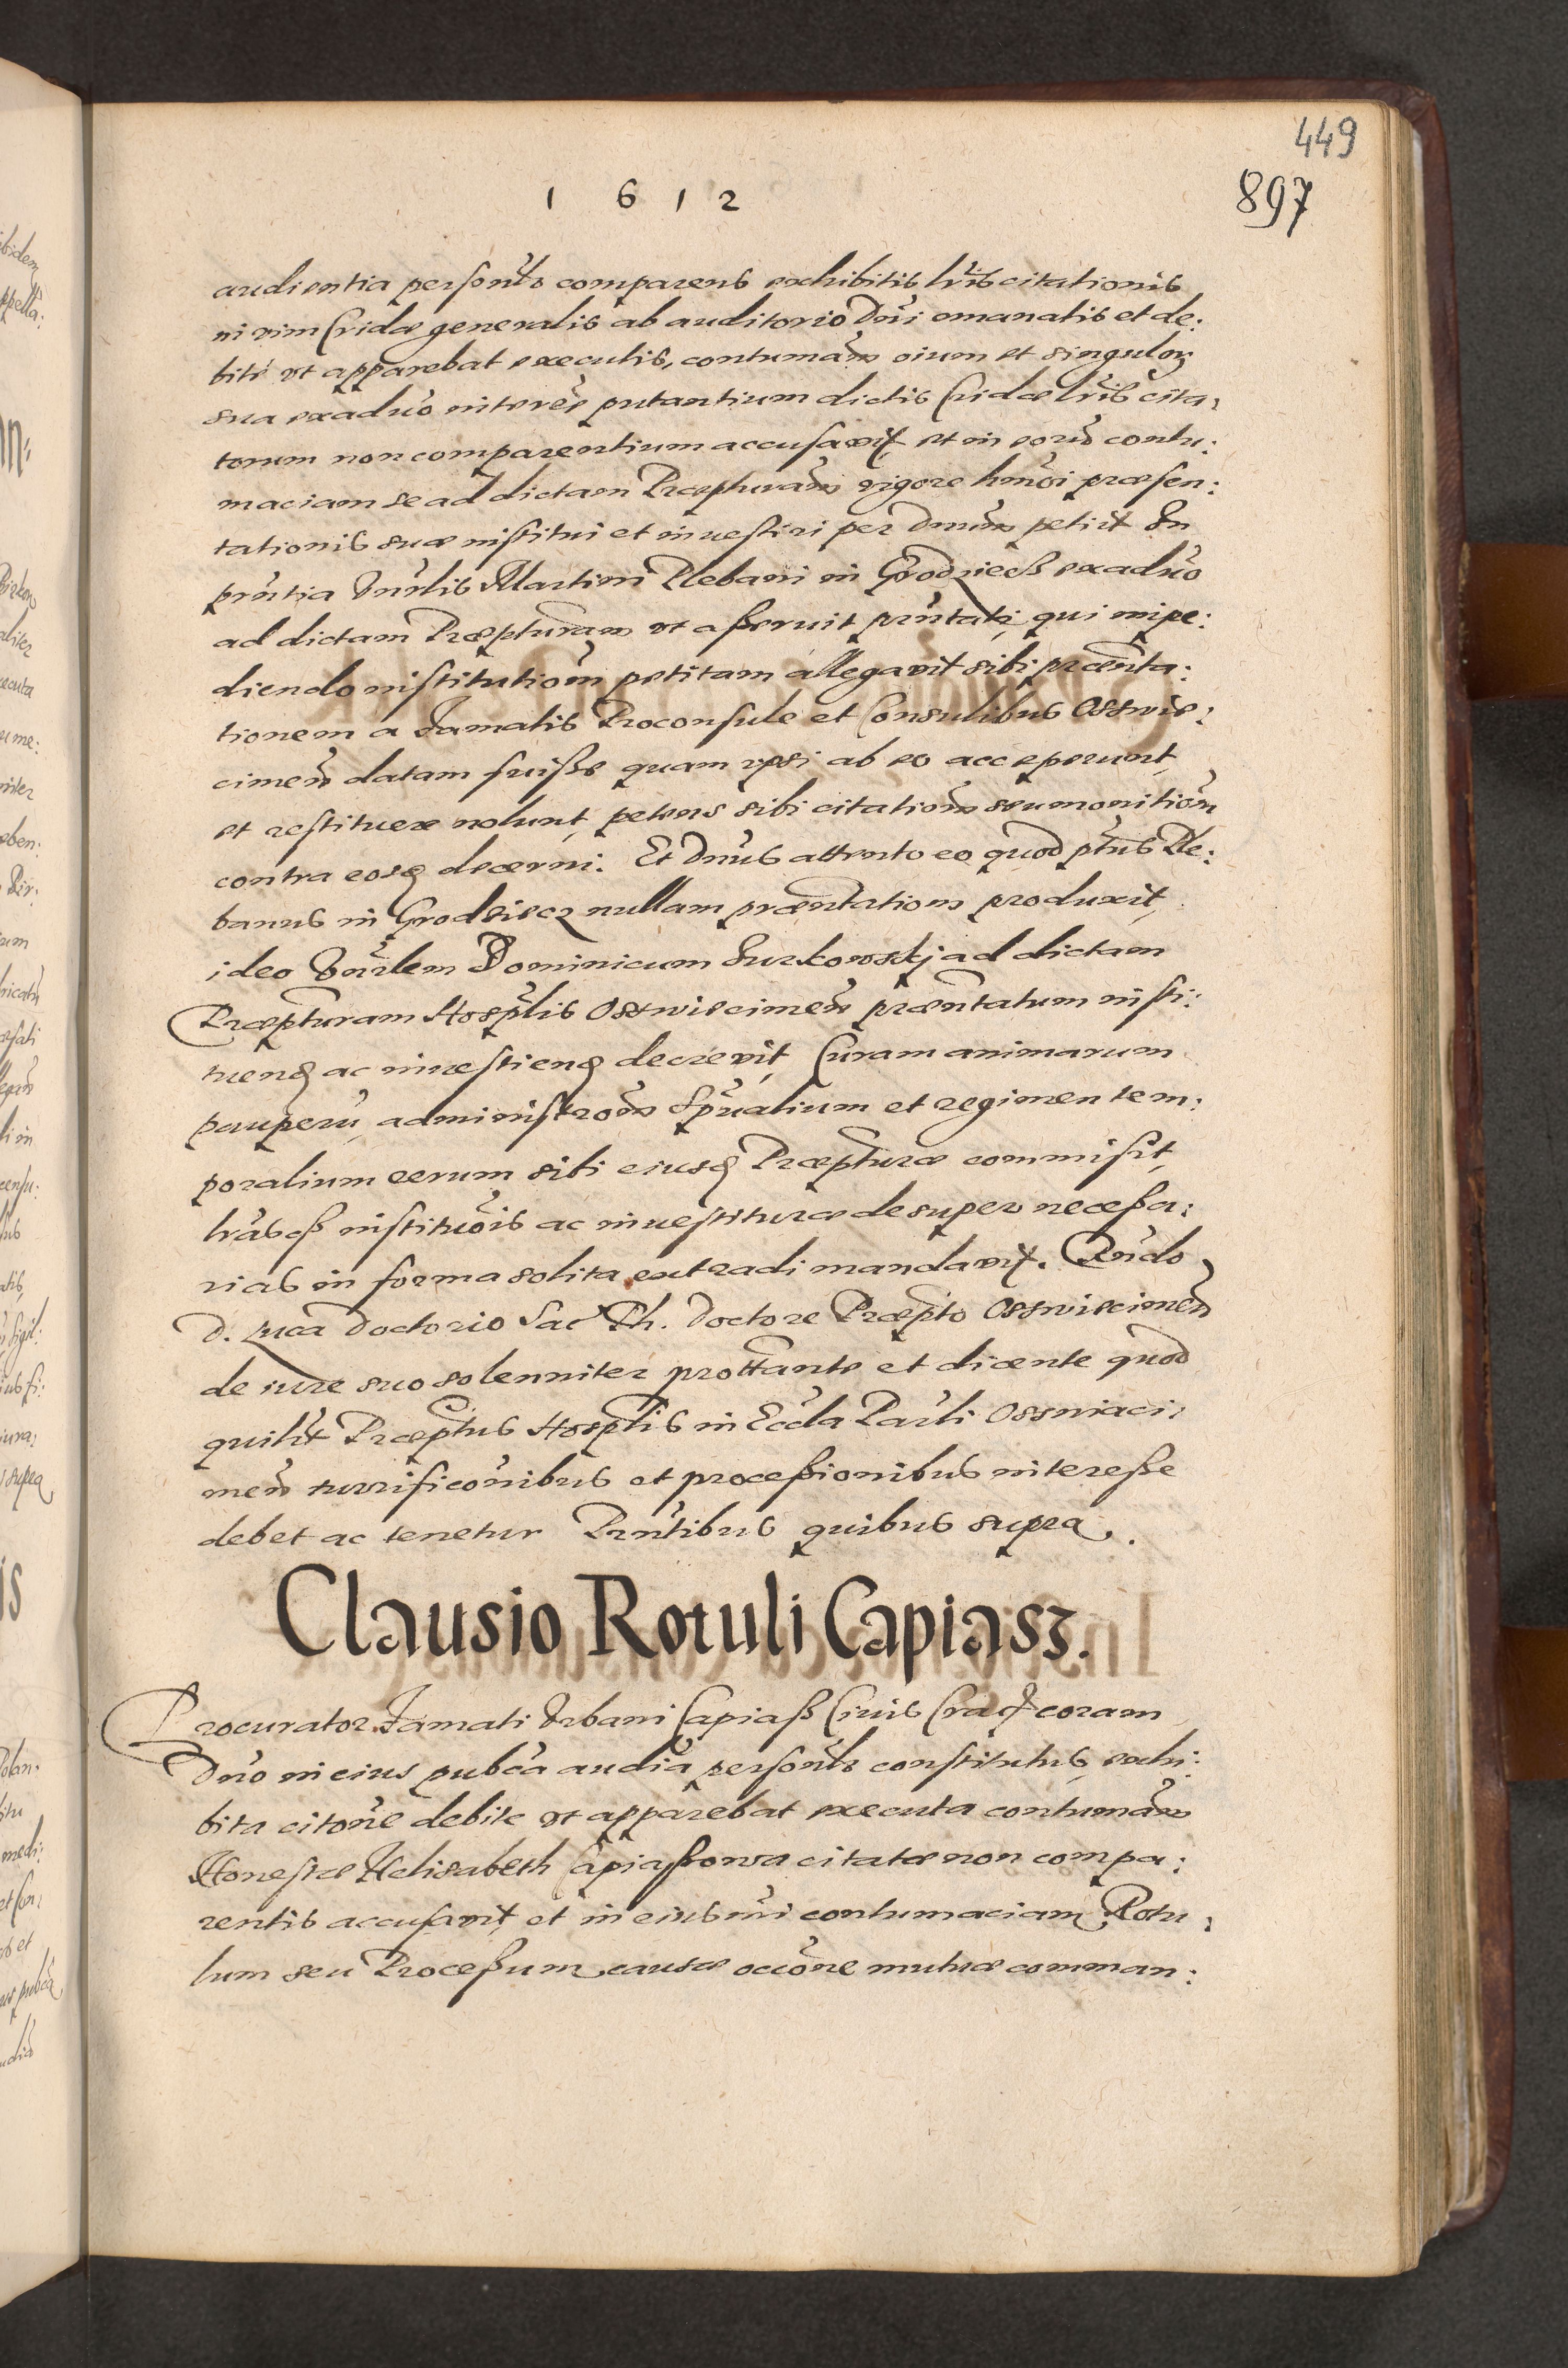 449
1 6 1 2
897
audientia personlr comparens exhibitis lris citationis
in vim Cridæ generalis ab auditorio Dni emanatis et de:
bite vt apparebat executis, contumam oium et singulor
sua exaduo interee putantium dictis Cridæ lris cita:
torum non comparentium accusavit, et in eorum contu:
maciam se ad dictam Præpturam vigore hmoi præsen:
tationis suæ institui et inuestiri per Dnum petiit In
prntia Vnrlis Martini Plebani in Grodzieck exaduo
ad dictam Præpturam vt asseruit prntati, qui impe:
diendo institutiom petitam allegavit sibi prænta:
tionem a Famatis Proconsule et Consulibus Osswie:
cimen datam fuisse quam ipsi ab eo acceperunt,
et restituere nolunt, petens sibi citatiom seu monitiom
contra eosd decerni. Et Dnus attento eo quod ptus Ple:
banus in Grodziecz nullam præntatiom produxit,
ideo Vnrlem Dominicum Surkowskj ad dictam
Præpturam Hosptlis Osswiecimen præntatum insti:
tuend ac inuestiend decrevit, Curam animarum
pauperu, administrom Spualium et regimen tem:
poralium rerum sibi eiusd Præpturæ commisit,
lras institutois ac inuestituræ desuper necessa:
rias in forma solita extradi mandavit. Rndo
D. Luca Doctorio Sac Th. Doctore Præpto Osswiecimen
de iure suo solenniter prottante et dicente quod
quilit Præptus Hosptlis in Eccla Parli Osswiaci:
men turrificonibus et processionibus interesse
debet ac tenetur Prntibus quibus supra.
Clausio Rotuli Capiasz.
Procurator Famati Vrbani Capiass Ciuis Crac coram
Dno in eius pubca audia personlr constitutus, exhi:
bita citone debite vt apparebat executa contumam
Honestæ Helisabeth Capiassowa citatæ non compa:
rentis accusavit, et in eiusmi contumaciam Rotu:
lum seu Processum causæ occone mutuæ comman: